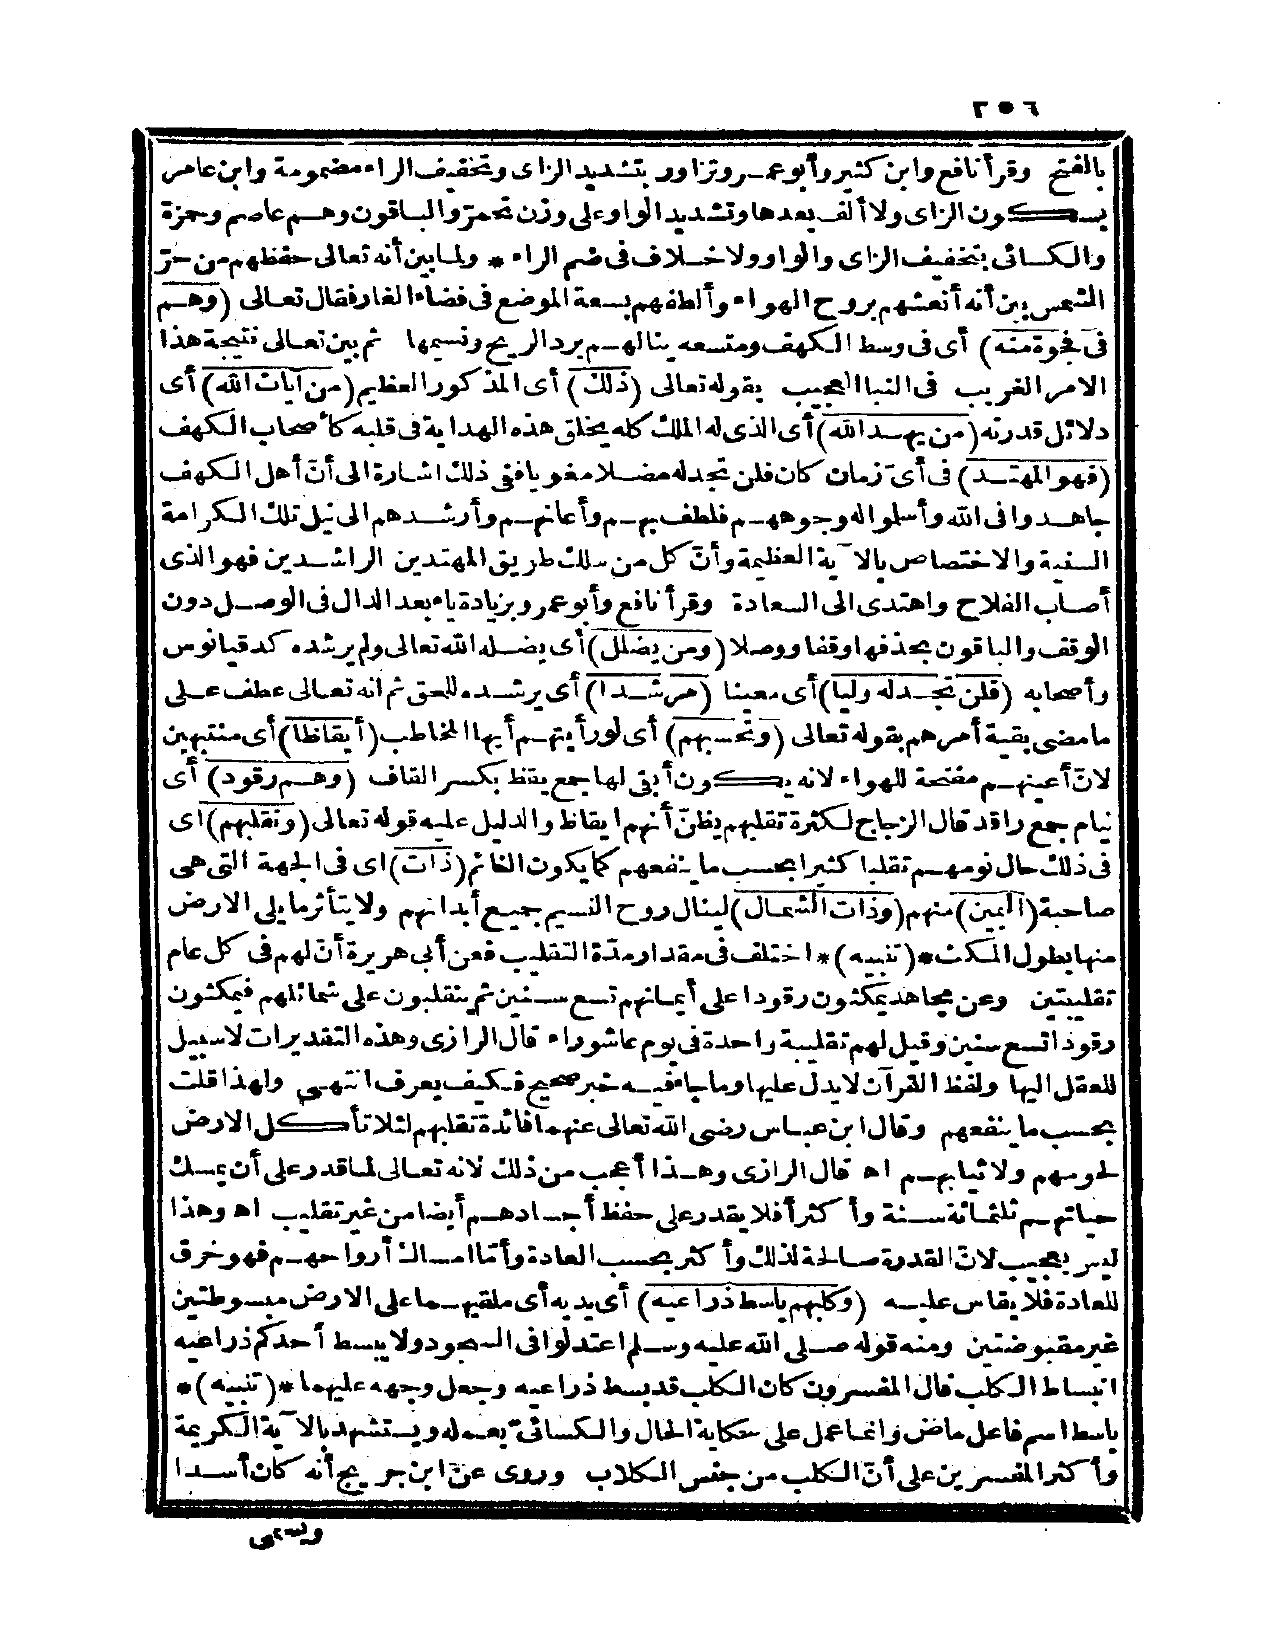 ٣٥٦
بالفتح وقرأ نافع وابن كثير وأبو عمرو تزاور بتشديد الزاى وتخفيف الراء مضمومة وابن عامر
بسكون الزاى ولا ألف بعدها وتشديد الواو على وزن تحمرّ والباقون وهم عاصم وحمزة
والكسائى بتخفيف الزاى والواو ولا خلاف فى ضم الراء * ولما بين أنه تعالى حفظهم من حرّ
الشمس بين أنه أنعشهم بروح الهواء وألطفهم بسعة الموضع فى فضاء الغار فقال تعالى (وهم
فى فجوة منه) أى فى وسط الكهف ومتسعه ينالهم برد الريح ونسيمها ثم بين تعالى نتيجة هذا
الامر الغريب فى النبا العجيب بقوله تعالى (ذلك) أى المذكور العظيم (من آيات الله) أى
دلائل قدرته (من يهد الله) أى الذى له الملك كله يخلق هذه الهداية فى قلبه كأصحاب الكهف
(فهو المهتد) فى أىّ زمان كان فلن تجد له مضلا مغويا ففى ذلك اشارة الى أنّ أهل الكهف
جاهدوا فى الله وأسلوا له وجوههم فلطف بهم وأعانهم وأرشدهم الى نيل تلك الكرامة
السنية والاختصاص بالآية العظيمة وأنّ كل من سلك طريق المهتدين الراشدين فهو الذى
أصاب الفلاح واهتدى الى السعادة وقرأ نافع وأبو عمرو بزيادة ياء بعد الدال فى الوصل دون
الوقف والباقون بحذفها وقفا ووصلا (ومن يضلل) أى يضله الله تعالى ولم يرشده كدقيانوس
وأصحابه (فلن تجد له وليا) أى معينا (مرشدا) أى يرشده للحق ثم انه تعالى عطف على
ما مضى بقية أمرهم بقوله تعالى (وتحسبهم) أى لو رأيتهم أيها المخاطب (أيقاظا) أى منتبهين
لانّ أعينهم مفتحة للهواء لانه يكون أبقى لها جمع يقظ بكسر القاف (وهم رقود) أى
نيام جمع راقد قال الزجاج لكثرة تقلبهم يظنّ أنهم ايقاظ والدليل عليه قوله تعالى (ونقلبهم) اى
فى ذلك حال نومهم تقلبا كثيرا بحسب ما ينفعهم كما يكون النائم (ذات) اى فى الجهة التى هى
صاحبة (اليمين) منهم (وذات الشمال) لينال روح النسيم جميع أبدانهم ولا يتأثر ما يلى الارض
منها بطول المكث * (تنبيه) * اختلف فى مقدار مدّة التقليب فعن أبى هريرة أنّ لهم فى كل عام
تقليبتين وعن مجاهد يمكثون رقودا على أيمانهم تسع سنين ثم ينقلبون على شمائلهم فيمكثون
رقودا تسع سنين وقيل لهم تقليبة واحدة فى يوم عاشوراء قال الرازى وهذه التقديرات لا سبيل
للعقل اليها ولفظ القرآن لا يدل عليها وما جاء فيه خبر صحيح فكيف يعرف انتهى ولهذا قلت
بحسب ما ينفعهم وقال ابن عباس رضى الله تعالى عنهما فائدة تقلبهم لئلا تأكل الارض
لحومهم ولا ثيابهم اه قال الرازى وهذا أعجب من ذلك لانه تعالى لما قدر على أن يمسك
حياتهم ثلثمائة سنة وأكثر أفلا يقدر على حفظ أجسادهم أيضا من غير تقليب اه وهذا
ليس بعجيب لانّ القدرة صالحة لذلك وأكثر بحسب العادة وأمّا امساك أرواحهم فهو خرق
للعادة فلا يقاس عليه (وكلبهم باسط ذراعيه) أى يديه أى ملقيهما على الارض مبسوطتين
غير مقبوضتين ومنه قوله صلى الله عليه وسلم اعتدلوا فى السجود ولا يبسط أحدكم ذراعيه
انبساط الكلب قال المفسرون كان الكلب قد بسط ذراعيه وجعل وجهه عليهما * (تنبيه) *
باسط اسم فاعل ماض وانما عمل على حكاية الحال والكسائىّ يعمله ويستشهد بالآية الكريمة
وأكثر المفسرين على أنّ الكلب من جنس الكلاب وروى عن ابن جريج أنه كان أسدا
ويسمى